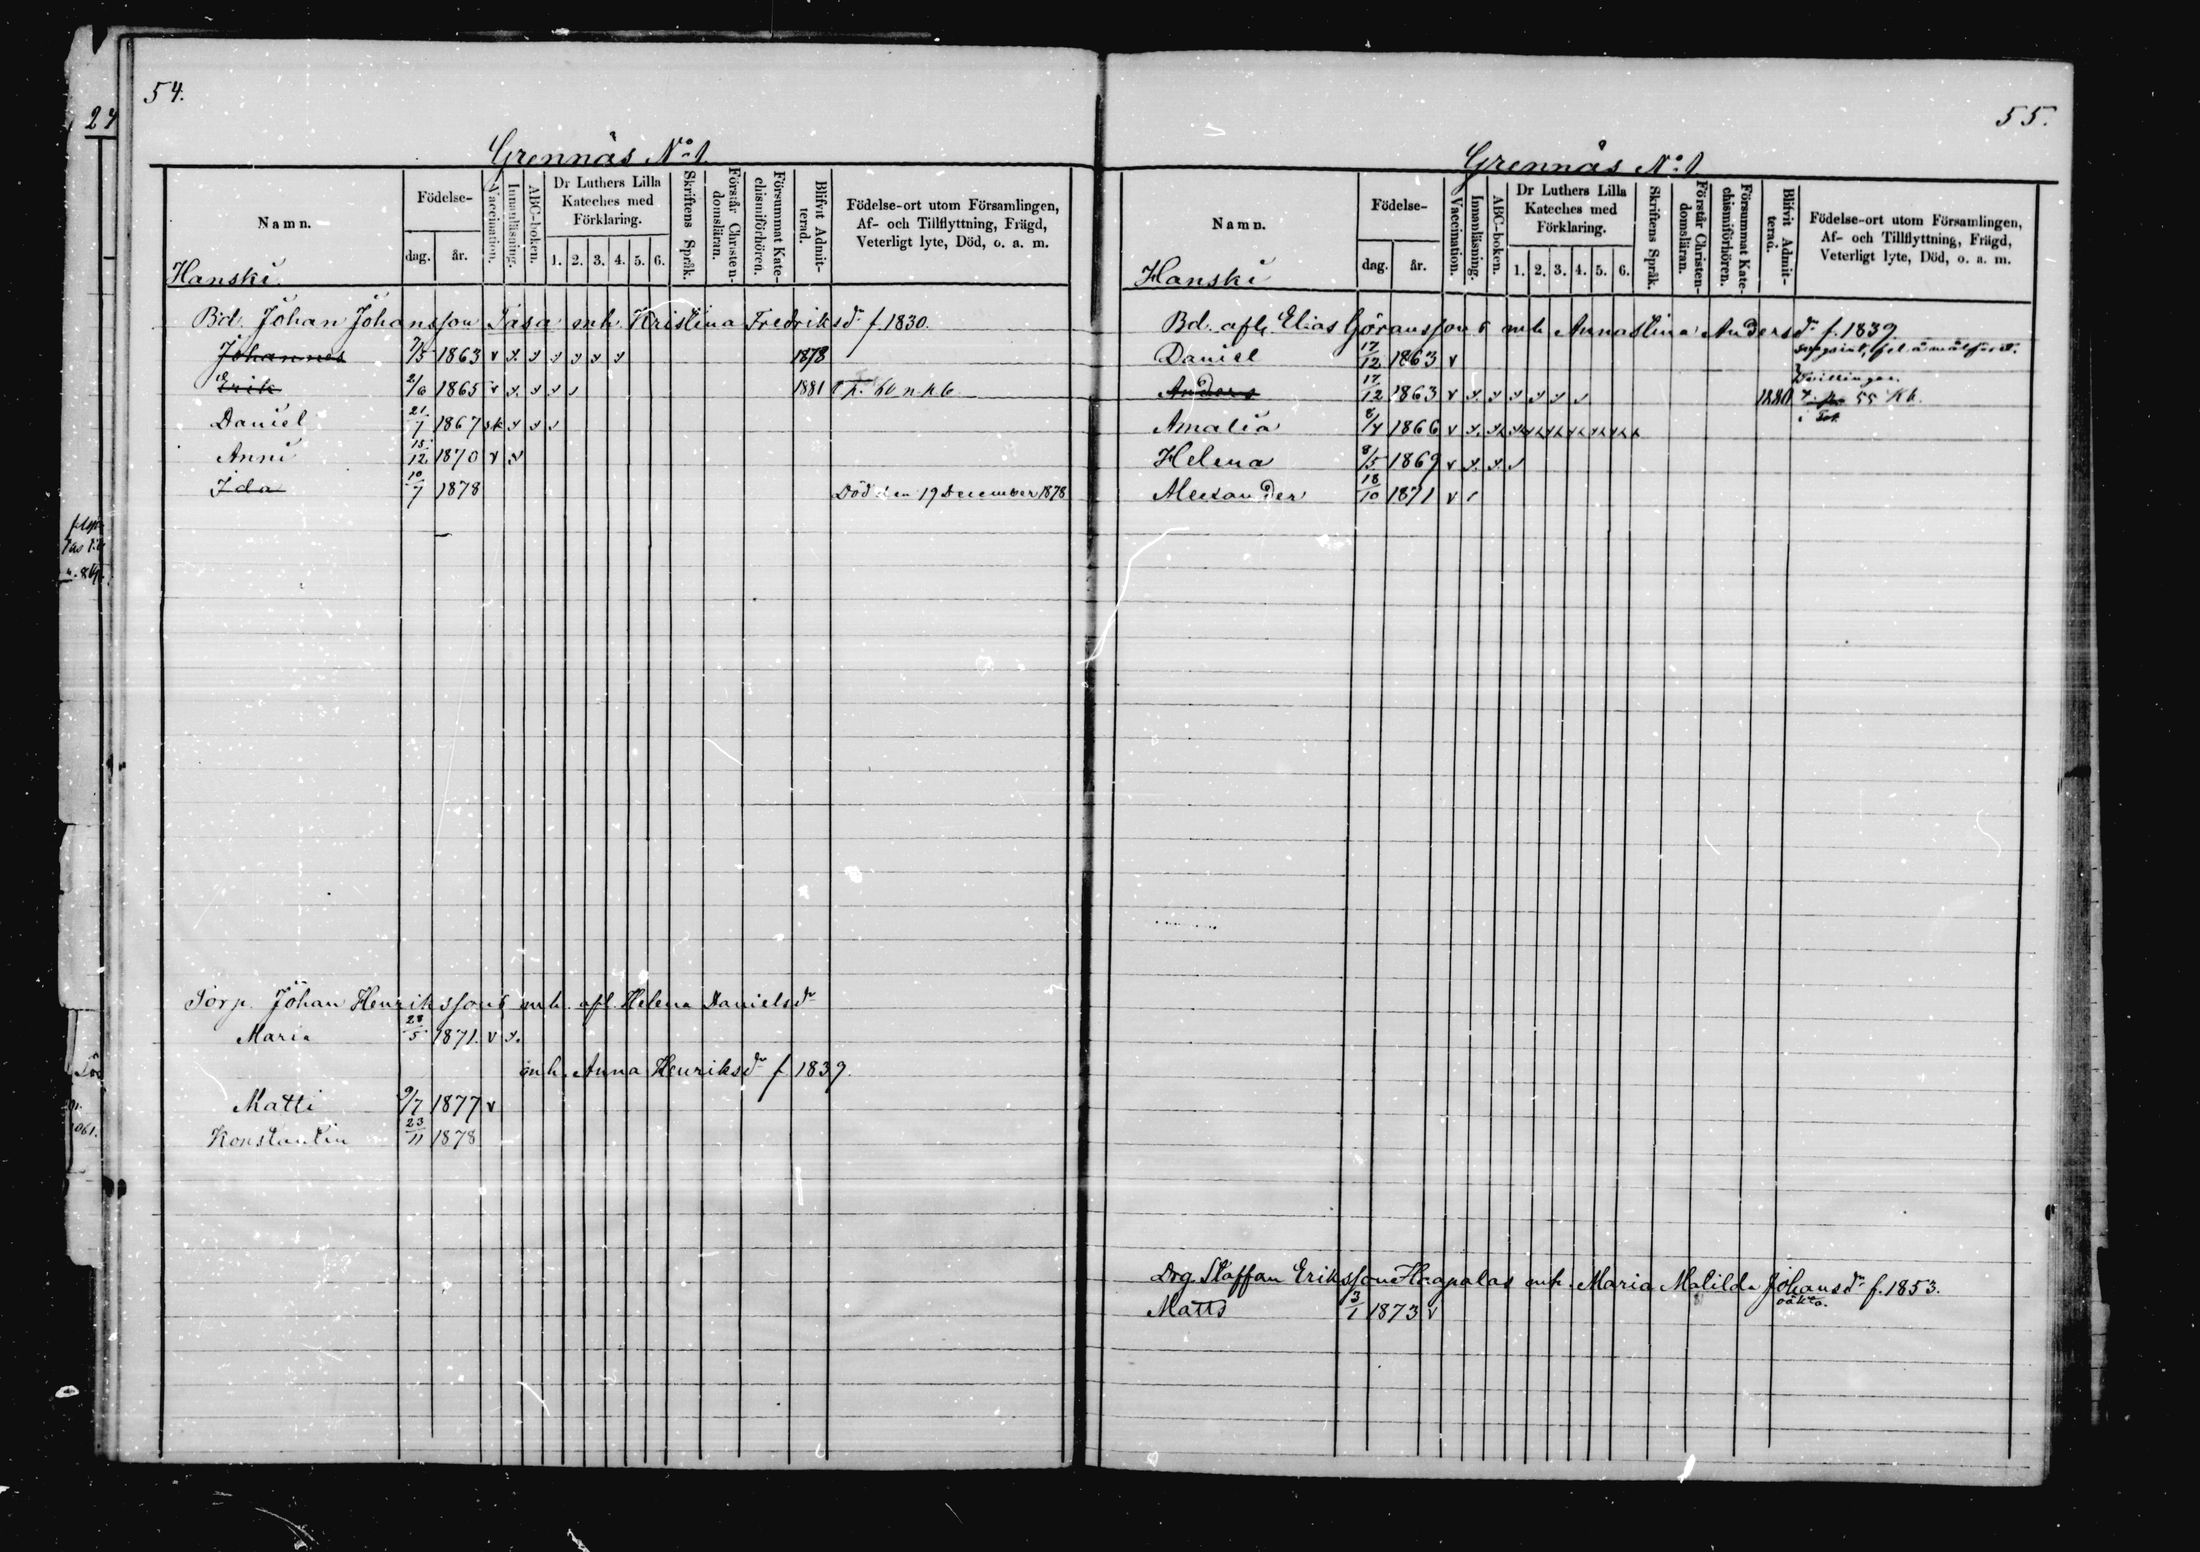 54.
Grennäs No 1.
Namn.
Födelse-
dag.
år.
Vaccination.
Innanläsning.
ABC-boken.
Dr Luthers Lilla
Kateches med
Förklaring.
1. 2. 3. 4. 5. 6.
Skriftens Språk.
Förstår Christen-
domsläran.
Försummat Kate-
chismiförhören.
Blifvit Admit-
terad.
Födelse-ort utom Församlingen,
Af- och Tillflyttning, Frägd,
Veterligt lyte, Död, o. a. m.
Hanski.
Bd. Johan Johansson Tasa mh. Kristina Fredriksdr f 1830.
Johannes 7/5 1863 v 1878
Erik 2/6 1865 v 1881
Daniel 21/7 1867 sk
Anni 15/12 1870 v
Ida 10/7 1878 Död den 19 December 1878
Torp. Johan Henrikssons mh. afl. Helena Danielsdr
Maria 28/5 1871. v
mh. Anna Henriksdr f 1839.
Matti 9/7 1877 v
Konstantin 23/11 1878
55.
Grennäs No 1
Namn.
Födelse-
dag.
år.
Vaccination.
Innanläsning.
ABC-boken.
Dr Luthers Lilla
Kateches med
Förklaring.
1. 2. 3. 4. 5. 6.
Skriftens Språk.
Förstår Christen-
domsläran.
Försummat Kate-
chismiförhören.
Blifvit Admit-
terad.
Födelse-ort utom Församlingen,
Af- och Tillflyttning, Frägd,
Veterligt lyte, Död, o. a. m.
Hanski
Bd. afl. Elias Göranssons mh Annastina Andersdr f. 1839.
Daniel 17/12 1863 v
Tvillingar.
Anders 17/12 1863 v 1880 55 Kb.
Amalia 8/4 1866 v
Helena 8/5 1869 v
Alexander 18/10 1871 v
Drg. Staffan Eriksson Haapalas mh. Maria Matilda Johansdr f. 1853.
Matts 3/1 1873 v oäkta.